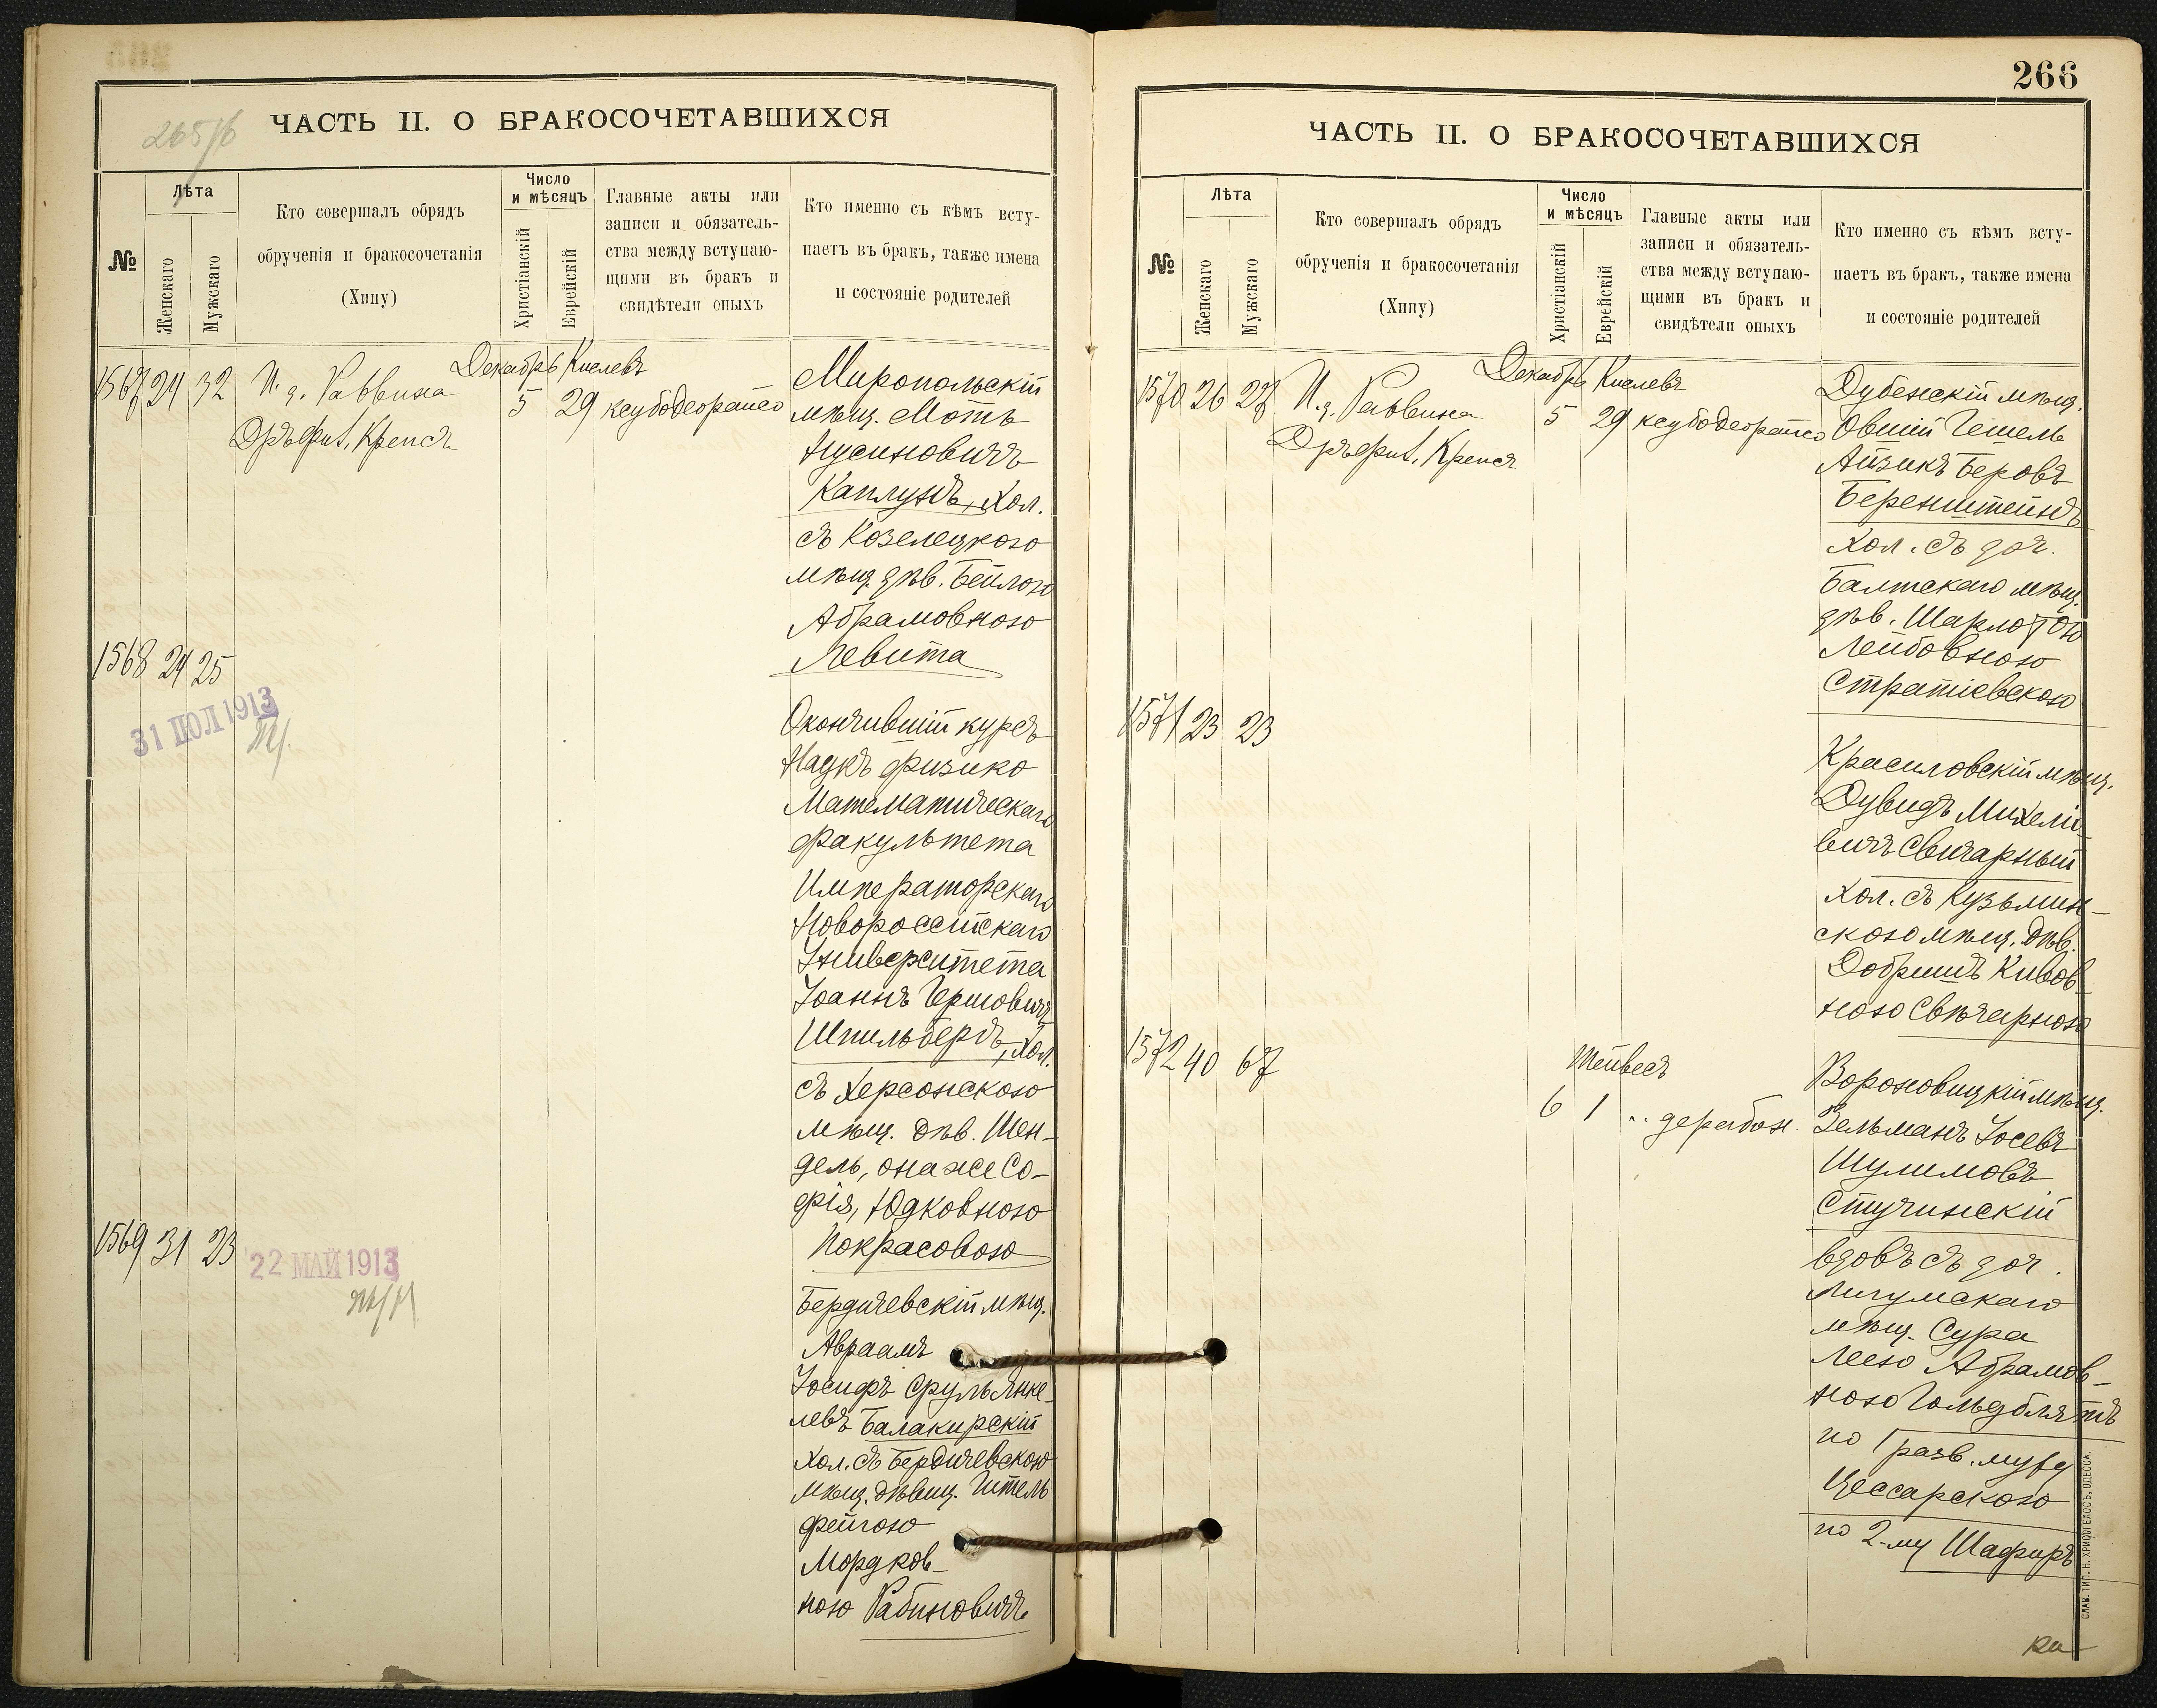 265/б
ЧАСТЬ II. О БРАКОСОЧЕТАВШИХСЯ
№
Лѣта
Женскаго
Мужскаго
Кто совершалъ обрядъ
обрученія и бракосочетанія
(Хипу)
Число
и мѣсяцъ
Христіанскій
Еврейскій
Главные акты или
записи и обязатель-
ства между вступаю-
щими въ бракъ и
свидѣтели оныхъ
Кто именно съ кѣмъ всту-
паетъ въ бракъ, также имена
и состояніе родителей
Декабрь Кислевъ
1567 24 32 И. д. Раввина 5 29 ксубодеорайсо
Крепсъ
Миропольскій
мѣщ. Мотъ
Нусиновичъ
Каплунъ, хол.
съ Козелецкою
мѣщ. дѣв. Бейлою
Абрамовною
Левита
1568 24 25
31 ІЮЛ 1913
Окончившій курсъ
Наукъ физико
Математическаго
факультета
Императорскаго
Новороссійскаго
Университета
Іоаннъ Гершовичъ
Шпильбергъ, хол.
съ Херсонскою
мѣщ. дѣв. Шен-
дель, она же Со-
фія, Юдковною
Покрасовою
1569 31 23
22 МАЙ 1913
Бердичевскій мѣщ.
Авраамъ
Іосифъ Срульянке-
левъ Балакирскій
хол. съ Бердичевскою
мѣщ. дѣвиц. Гитель
Фейгою
Мордков-
ною Рабиновичъ
266
ЧАСТЬ II. О БРАКОСОЧЕТАВШИХСЯ
№
Лѣта
Женскаго
Мужскаго
Кто совершалъ обрядъ
обрученія и бракосочетанія
(Хипу)
Число
и мѣсяцъ
Христіанскій
Еврейскій
Главные акты или
записи и обязатель-
ства между вступаю-
щими въ бракъ и
свидѣтели оныхъ
Кто именно съ кѣмъ всту-
паетъ въ бракъ, также имена
и состояніе родителей
Декабрь Кислевъ
1570 26 27 И. д. Раввина 5 29 ксубодеорайсо
Крепсъ
Дубенскій мѣщ.
Овшій Гешель
Айзикъ Беровъ
Беренштейнъ
хол. съ доч.
Балтскаго мѣщ.
дѣв. Шарлотою
Лейбовною
Стратіевскою
1571 23 23
Красиловскій мѣщ.
Дувидъ Михели-
вичъ Свичарный
хол. съ Кузьмин-
скою мѣщ. дѣв.
Добришъ Кивов-
ною Свѣчарною
1572 40 67
Тейвесъ
6 1 " дерабон.
Вороновицкій мѣщ.
Зельманъ Іосевъ
Шулимовъ
Стучинскій
вдовъ съ доч.
Лигумскаго
мѣщ. Сура
Леею Абрамов-
ною Гольдблятъ
по 1 разв. мужу
Цессарскою
по 2-му Шафиръ
СЛАВ. ТИП. Н. ХРИСОГЕЛОСЪ, ОДЕССА.